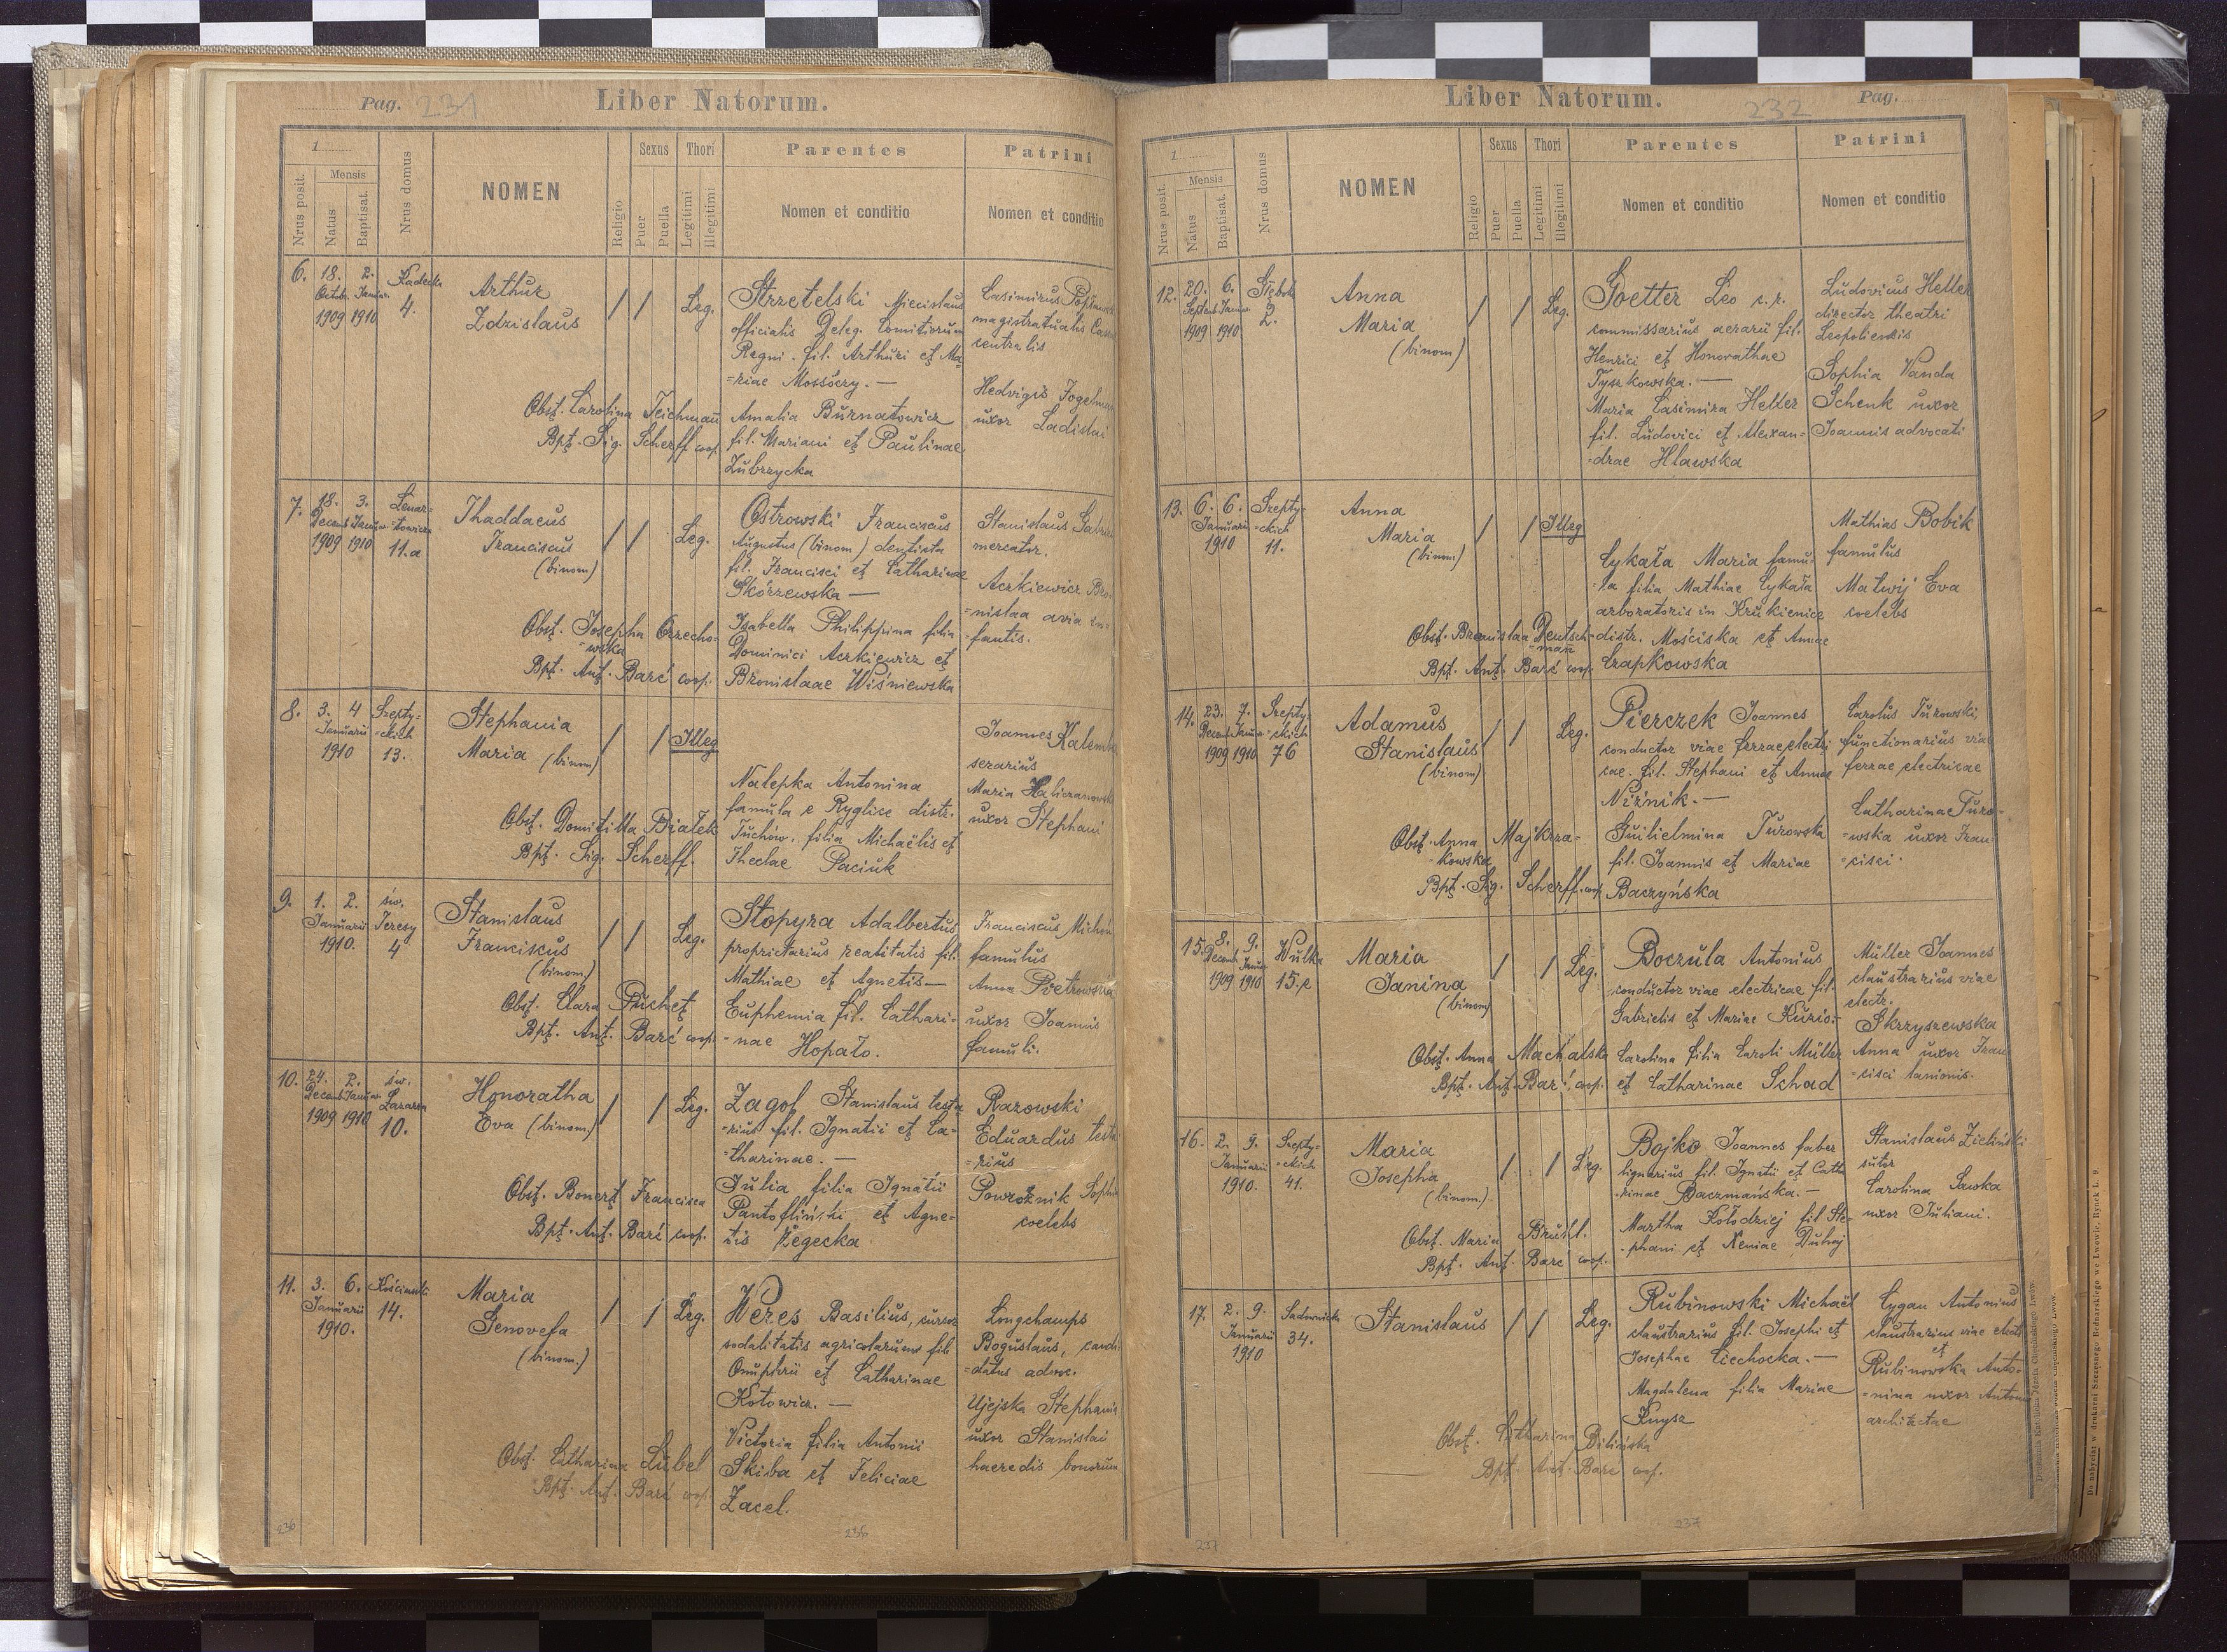 Pag. 231 Liber Natorum.
1 Nrus posit. Mensis Natus Baptisat. Nrus domus NOMEN Religio Sexus Puer Puella Thori Legitimi Illegitimi Parentes Nomen et conditio Patrini Nomen et conditio
6. 18. Octob. 1909 2. Januar. 1910 Kadecka 4.
Arthur
Zdzislaus
/ / Leg.
Strzetelski Miecislaus
officialis Deleg. Comitiorum
Regni. fil. Arthuri et Ma-
=riae Mossóczy. —
Amalia Burnatowicz
fil. Mariani et Paulinae
Zubrzycka
Casimirus
magistratualis
centralis
Hedvigis
uxor Ladislai
Obst. Carolina Teichman
Bpt. Sig. Scherff coop.
7. 18. Decemb. 1909 3. Januar. 1910 Lenar-
=towicza
11.a
Thaddaeus
Franciscus
(binom)
/ / Leg.
Ostrowski Franciscus
Augustus (binom) dentista
fil. Francisci et Catharinae
Skórzewska —
Isabella Philippina filia
Dominici Aczkiewicz et
Bronislaae Wiśniewska
Stanislaus
mercator.
Aczkiewicz Bro-
=nislaa avia in-
=fantis.
Obst. Josepha Orzecho-
=wska
Bpt. Ant. Barć coop.
8. 3. 4 Januarii 1910 Szepty-
=ckich
13.
Stephania
Maria (binom)
/ / Illeg
Nalepka Antonina
famula e Ryglice distr.
Tuchów. filia Michaëlis et
Theclae Paciuk
Joannes
Maria
uxor Stephani
Obst. Domitilla Białek
Bpt. Sig. Scherff.
9. 1. 2. Januarii 1910. św.
Teresy
4
Stanislaus
Franciscus
(binom)
/ / Leg.
Stopyra Adalbertus
proprietarius realitatis fil.
Mathiae et Agnetis —
Euphemia fil. Cathari-
=nae Hopało.
Franciscus
famulus
Anna
uxor Joannis
famuli.
Obst. Clara Puchet
Bpt. Ant. Barć coop.
10. 24. Decemb. 1909 2. Januar. 1910 św.
Łazarza
10.
Honoratha
Eva (binom)
/ / Leg.
Zagol Stanislaus testa
=rius fil. Ignatii et Ca-
=tharinae. —
Julia filia Ignatii
Pantofliński et Agne-
tis Żegecka
Razowski
Eduardus testa
=rius
Powroźnik Sophia
coelebs
Obst. Bonert Francisca
Bpt. Ant. Barć coop.
11. 3. 6. Januarii 1910. 14.
Maria
Genovefa
(binom.)
/ / Leg.
Weres Basilius, cursor
sodalitatis agricolarum fil.
Onuphrii et Catharinae
Kotowicz. —
Victoria filia Antonii
Skiba et Feliciae
Zacel.
Longchamps
Boguslaus, candi
=datus advoc.
Ujejska Stephania
uxor Stanislai
haeredis bonorum
Obst. Catharina Lubel
Bpt. Ant. Barć coop.
236 236
Liber Natorum. 232 Pag.
1 Nrus posit. Mensis Natus Baptisat. Nrus domus NOMEN Religio Sexus Puer Puella Thori Legitimi Illegitimi Parentes Nomen et conditio Patrini Nomen et conditio
12. 20. Septemb. 1909 6. Januar. 1910 2.
Anna
Maria
(binom)
/ / Leg.
Goetter Leo c. r.
commissarius aerarii fil.
Henrici et Honorathae
Tyszkowska. —
Maria Casimira Heller
fil. Ludovici et Alexan-
=drae Hlawska
Ludovicus Heller
director theatri
Leopoliensis
Sophia Vanda
Schenk uxor
Joannis advocati
13. 6. 6. Januarii 1910 Szepty-
=ckich
11.
Anna
Maria
(binom)
/ / Illeg
Cykała Maria famu-
=la filia Mathiae Cykała
arboratoris in Krukienice
distr. Mościska et Annae
Czapkowska
Mathias Bobik
famulus
Matwij Eva
coelebs
Obst. Bronislaa Deutsch-
=man
Bpt. Ant. Barć coop.
14. 23. Decemb. 1909 7. Januar. 1910 Szepty-
=ckich
76
Adamus
Stanislaus
(binom)
/ / Leg.
Pierczek Joannes
conductor viae ferrae electri
cae. fil. Stephani et Annae
Niżnik. —
Guilielmina Turowska
fil. Joannis et Mariae
Baczyńska
Carolus Turowski,
functionarius viae
ferrae electricae
Catharinae Turo-
=wska uxor Fran-
=cisci.
Obst. Anna Majkrza-
=kowska
Bpt. Sig. Scherff coop.
15. 8. Decemb. 1909 9. Januar. 1910 Wulka
15.c
Maria
Janina
(binom)
/ / Leg.
Boczula Antonius
conductor viae electricae fil.
Gabrielis et Mariae
Carolina filia Caroli Müller
et Catharinae Schad
Müller Joannes
claustrarius viae
electr.
Skrzyszewska
Anna uxor Fran
=cisci lanionis.
Obst. Anna Machalska
Bpt. Ant. Barć coop.
16. 2. 9. Januarii 1910. Szepty-
=ckich
41.
Maria
Josepha
(binom.)
/ / Leg.
Bojko Joannes faber
lignarius fil. Ignatii et Catha
rinae Baczmańska. —
Martha Kołodziej fil Ste-
=phani et Xeniae Duhaj
Stanislaus Zieliński
sutor
Carolina Sawka
uxor Juliani.
Obst. Maria Brühl.
Bpt. Ant. Barć coop.
17. 2. 9. Januarii 1910 Sadownicka
34.
Stanislaus
/ / Leg.
Rubinowski Michaël
claustrarius fil. Josephi et
Josephae Ciechocka. —
Magdalena filia Mariae
Knysz
Cygan Antonius
claustrarius viae elect.
et
Rubinowska Anto-
=nina uxor Antonii
architectae
Obst. Catharina Bilińska
Bpt. Ant. Barć coop.
237 237
Do nabycia w drukarni Szczęsnego Bednarskiego we Lwowie, Rynek L. 9.